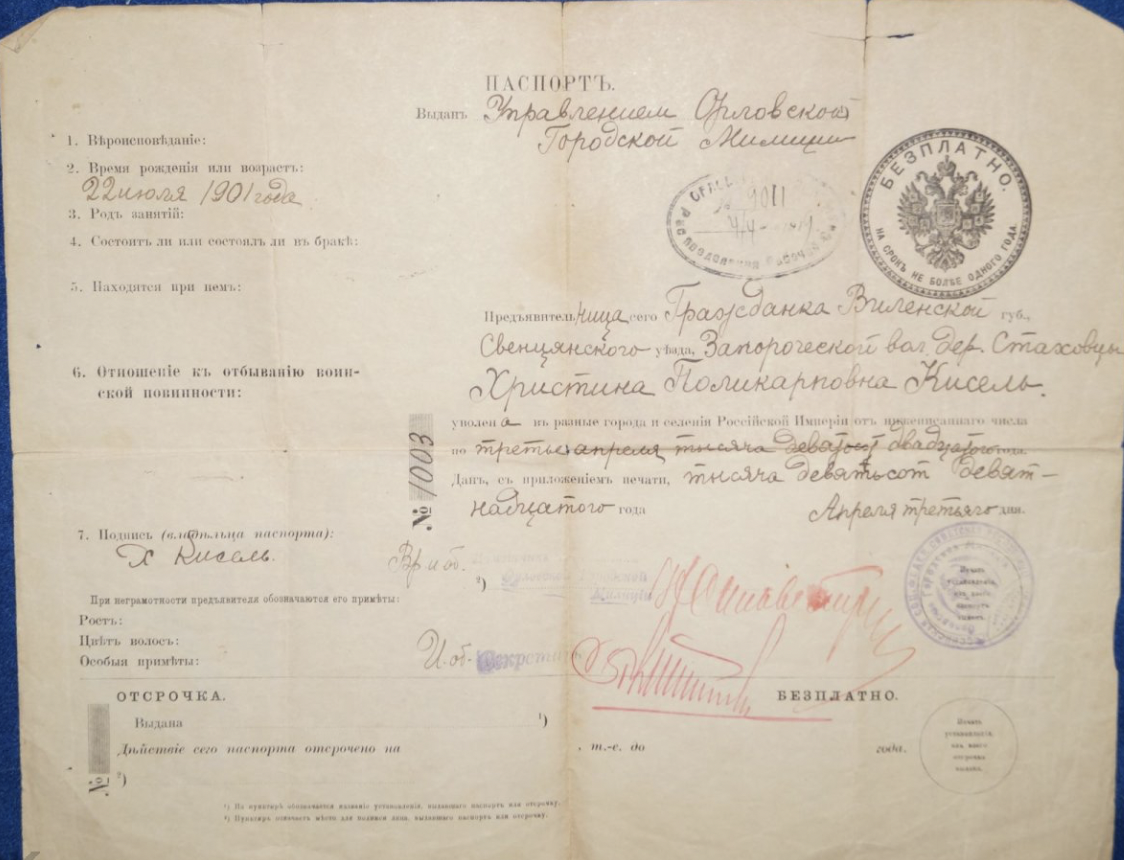 ПАСПОРТЪ.
Выданъ Управлением Орловской
Городской Милиции
1. Вѣроисповѣданіе:
2. Время рожденія или возрастъ:
22 июля 1901 года
3. Родъ занятій:
4. Состоитъ ли или состоялъ ли въ бракѣ:
5. Находятся при немъ:
6. Отношеніе къ отбыванію воин-
ской повинности:
7. Подпись (владѣльца паспорта):
Х Кисель.
При неграмотности предъявителя обозначаются его примѣты:
Ростъ:
Цвѣтъ волосъ:
Особыя примѣты:
№ 9011
БЕЗПЛАТНО.
НА СРОКЪ НЕ БОЛѢЕ ОДНОГО ГОДА.
Предъявительница сего Гражданка Виленской губ.,
Свенцянского уѣзда, вол. дер. Стаховцы
Христина Поликарповна Кисель.
уволена въ разные города и селенія Россійской Имперіи отъ нижеписаннаго числа
по третье апреля тысяча девятсот двадцатого года.
Данъ, съ приложеніемъ печати, тысяча девятьсот девят-
надцатого года Апреля третьяго дня.
№ 1003
Вр и об.
²)
Милиции
И. об. Секретаря
Печать
установленія,
изъ коего
паспортъ
выданъ.
ОТСРОЧКА.
БЕЗПЛАТНО.
Выдана ¹)
Дѣйствіе сего паспорта отсрочено на , т.-е. до года.
№ ²)
Печать
установленія,
изъ коего
отсрочка
выдана.
¹) На пунктирѣ обозначается названіе установленія, выдавшаго паспортъ или отсрочку.
²) Пунктиръ означаетъ мѣсто для подписи лица, выдавшаго паспортъ или отсрочку.